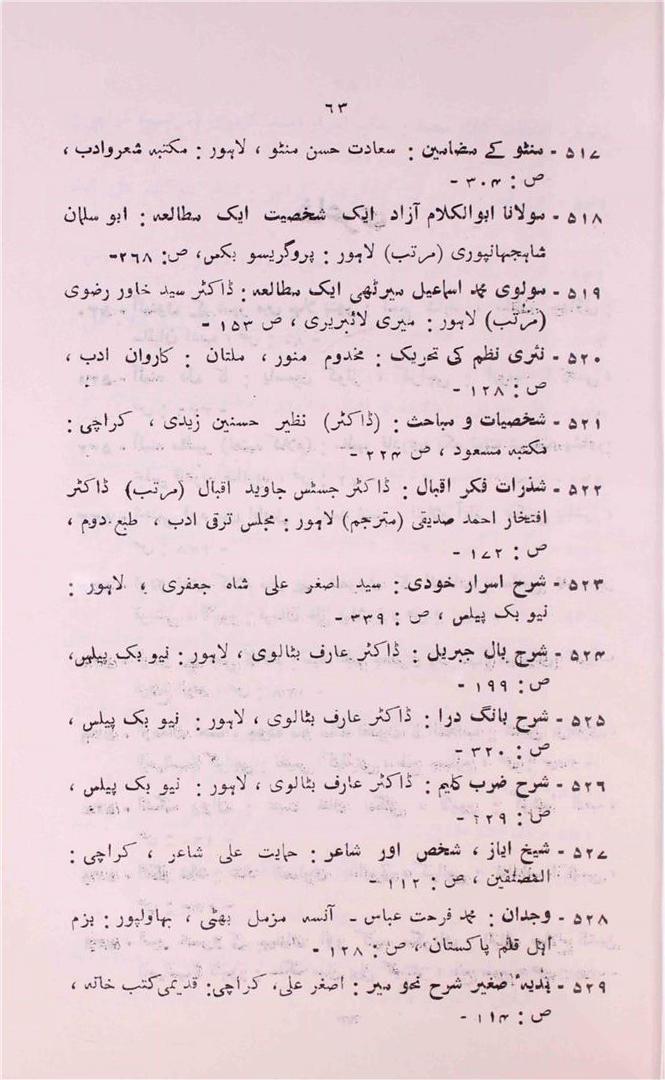 ٦٣
٥١٧ - منٹو کے مضامین : سعادت حسن منٹو ، لاہور : مکتبہ شعروادب ،
ص : ٣٠٤ -
٥١٨ - مولانا ابوالکلام آزاد ایک شخصیت ایک مطالعہ : ابو سلمان
شاہجہانپوری (مرتب) لاہور : پروگریسو بکس، ص: ٢٦٨-
٥١٩ - مولوی محمد اسماعیل میرٹھی ایک مطالعہ : ڈاکٹر سید خاور رضوی
(مرتب) لاہور : میری لائبریری ، ص ١٥٣ -
٥٢٠ - نثری نظم کی تحریک : مخدوم منور، ملتان : کاروان ادب ،
ص : ١٢٨ -
٥٢١ - شخصیات و مباحث : (ڈاکٹر) نظیر حسنین زیدی ، کراچی :
مکتبہ مسعود ، ص ٢٢٤ -
٥٢٢ - شذرات فکر اقبال : ڈاکٹر جسٹس جاوید اقبال (مرتب) ڈاکٹر
افتخار احمد صدیقی (مترجم) لاہور : مجلس ترقی ادب ، طبع دوم ،
ص : ١٧٢ -
٥٢٣ - شرح اسرار خودی : سید اصغر علی شاہ جعفری ، لاہور :
نیو بک پیلس ، ص : ٣٣٩ -
٥٢٤ - شرح بال جبریل : ڈاکٹر عارف بٹالوی ، لاہور : نیو بک پیلس،
ص : ١٩٩ -
٥٢٥ - شرح بانگ درا : ڈاکٹر عارف بٹالوی ، لاہور : نیو بک پیلس ،
ص : ٣٢٠ -
٥٢٦ - شرح ضرب کلیم : ڈاکٹر عارف بٹالوی ، لاہور : نیو بک پیلس ،
ص :
٥٢٧ - شیخ ایاز ، شخص اور شاعر : حمایت علی شاعر ، کراچی :
المصنفین ، ص : ١١٢ -
٥٢٨ - وجدان : محمد فرحت عباس - آنسہ مزمل بھٹی ، بہاولپور : بزم
اہل قلم پاکستان ، ص : ١٢٨ -
٥٢٩ - ہدیہٴ صغیر شرح نحو میر : اصغر علی، کراچی: قدیمی کتب خانہ ،
ص : ١١٤ -